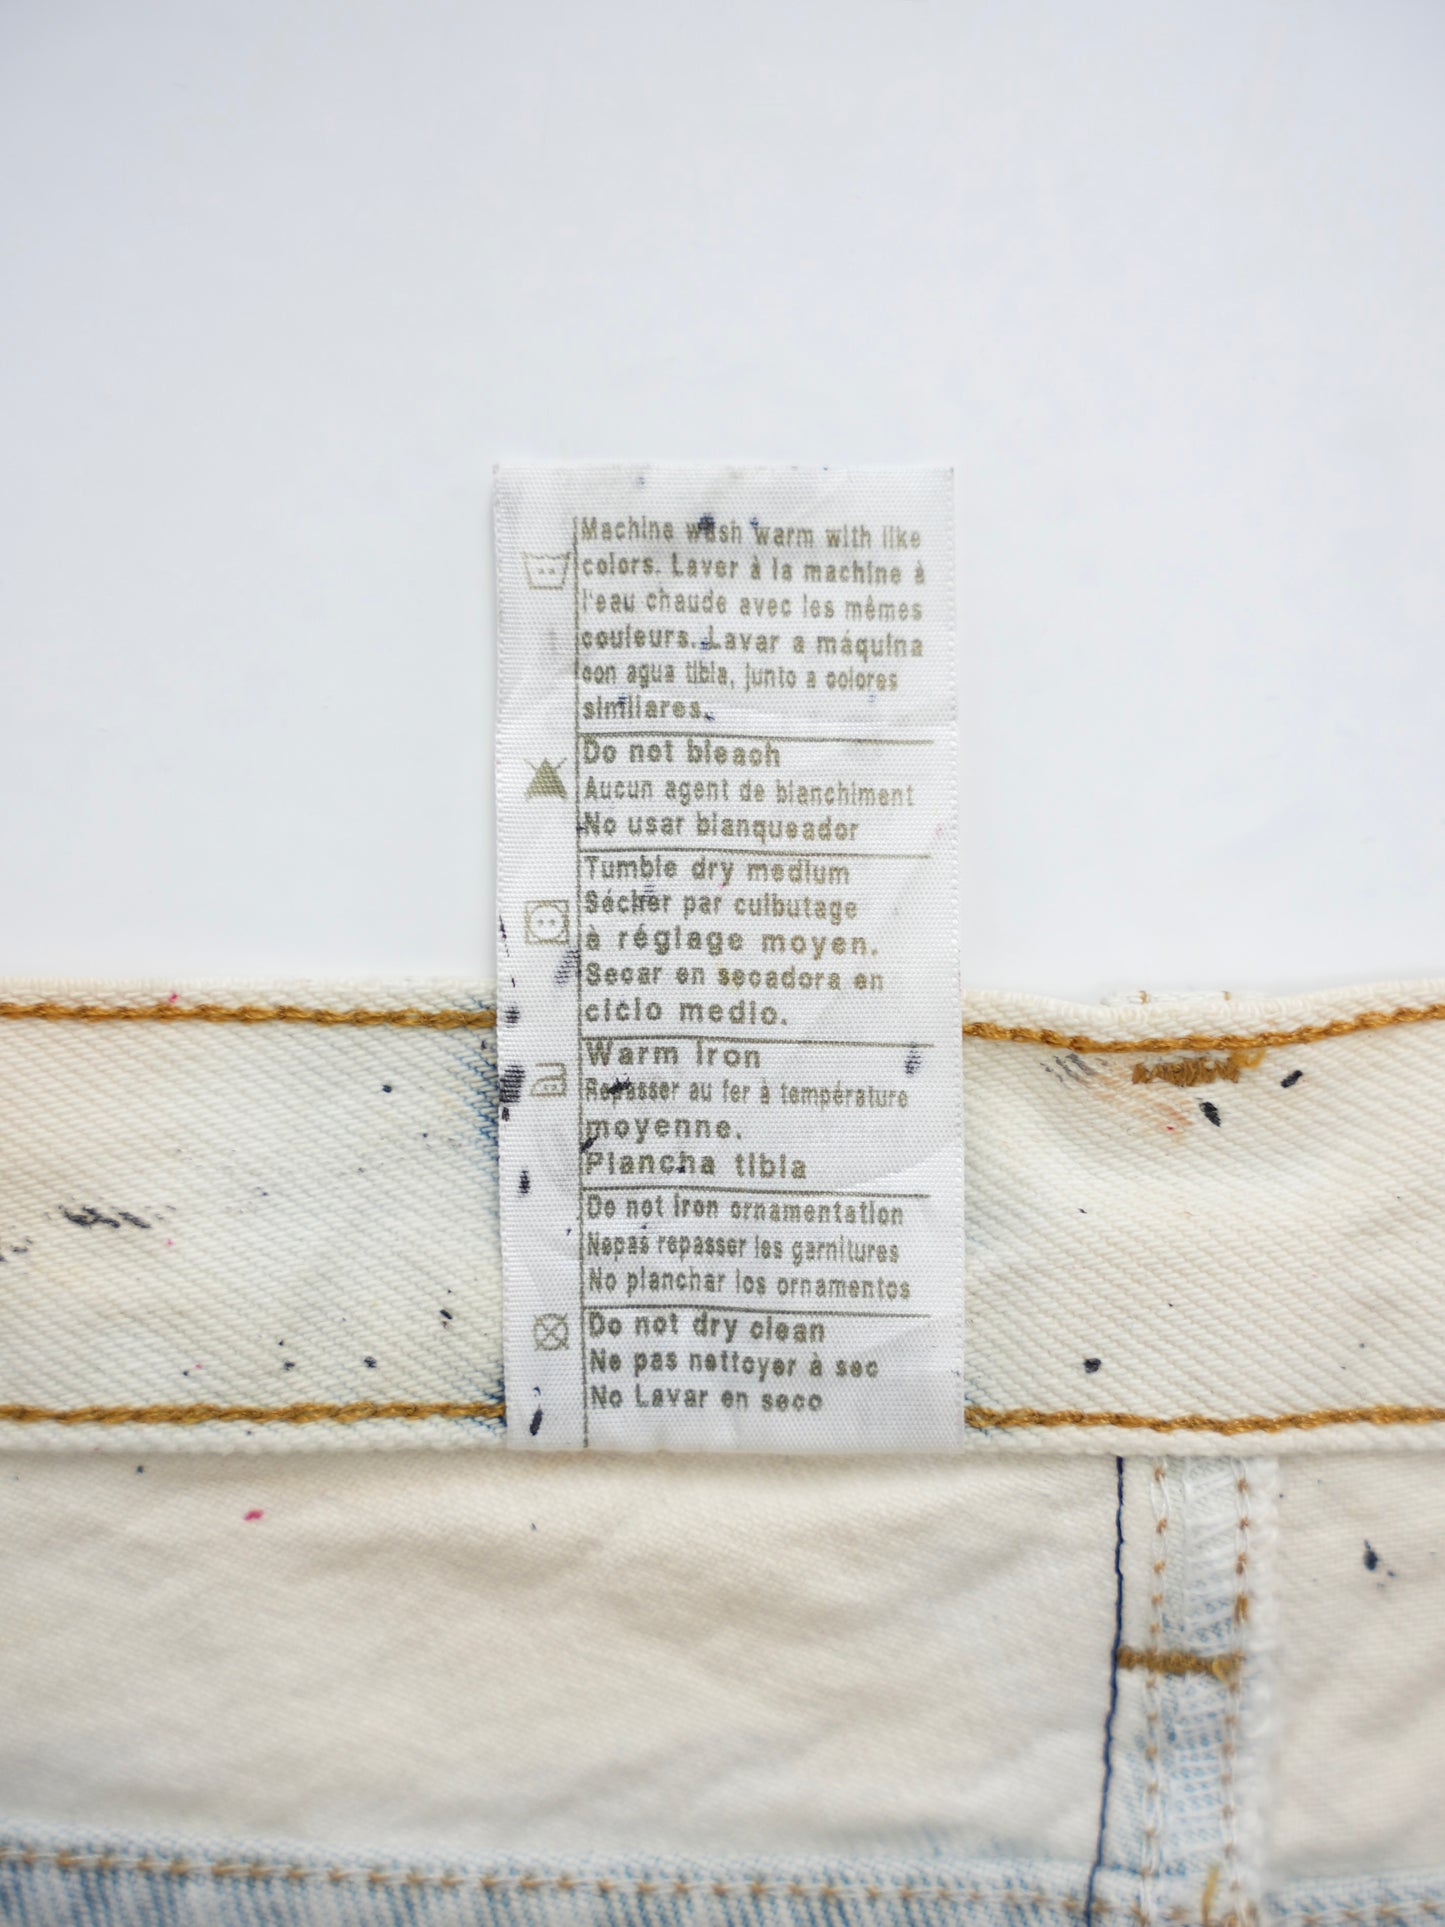 Machine wash warm with like
colors. Laver à la machine à
l'eau chaude avec les mêmes
couleurs. Lavar a máquina
con agua tibia, junto a colores
similares.
Do not bleach
Aucun agent de blanchiment
No usar blanqueador
Tumble dry medium
Sécher par culbutage
à réglage moyen.
Secar en secadora en
ciclo medio.
Warm Iron
Repasser au fer à température
moyenne.
Plancha tibia
Do not iron ornamentation
Nepas repasser les garnitures
No planchar los ornamentos
Do not dry clean
Ne pas nettoyer à sec
No Lavar en seco